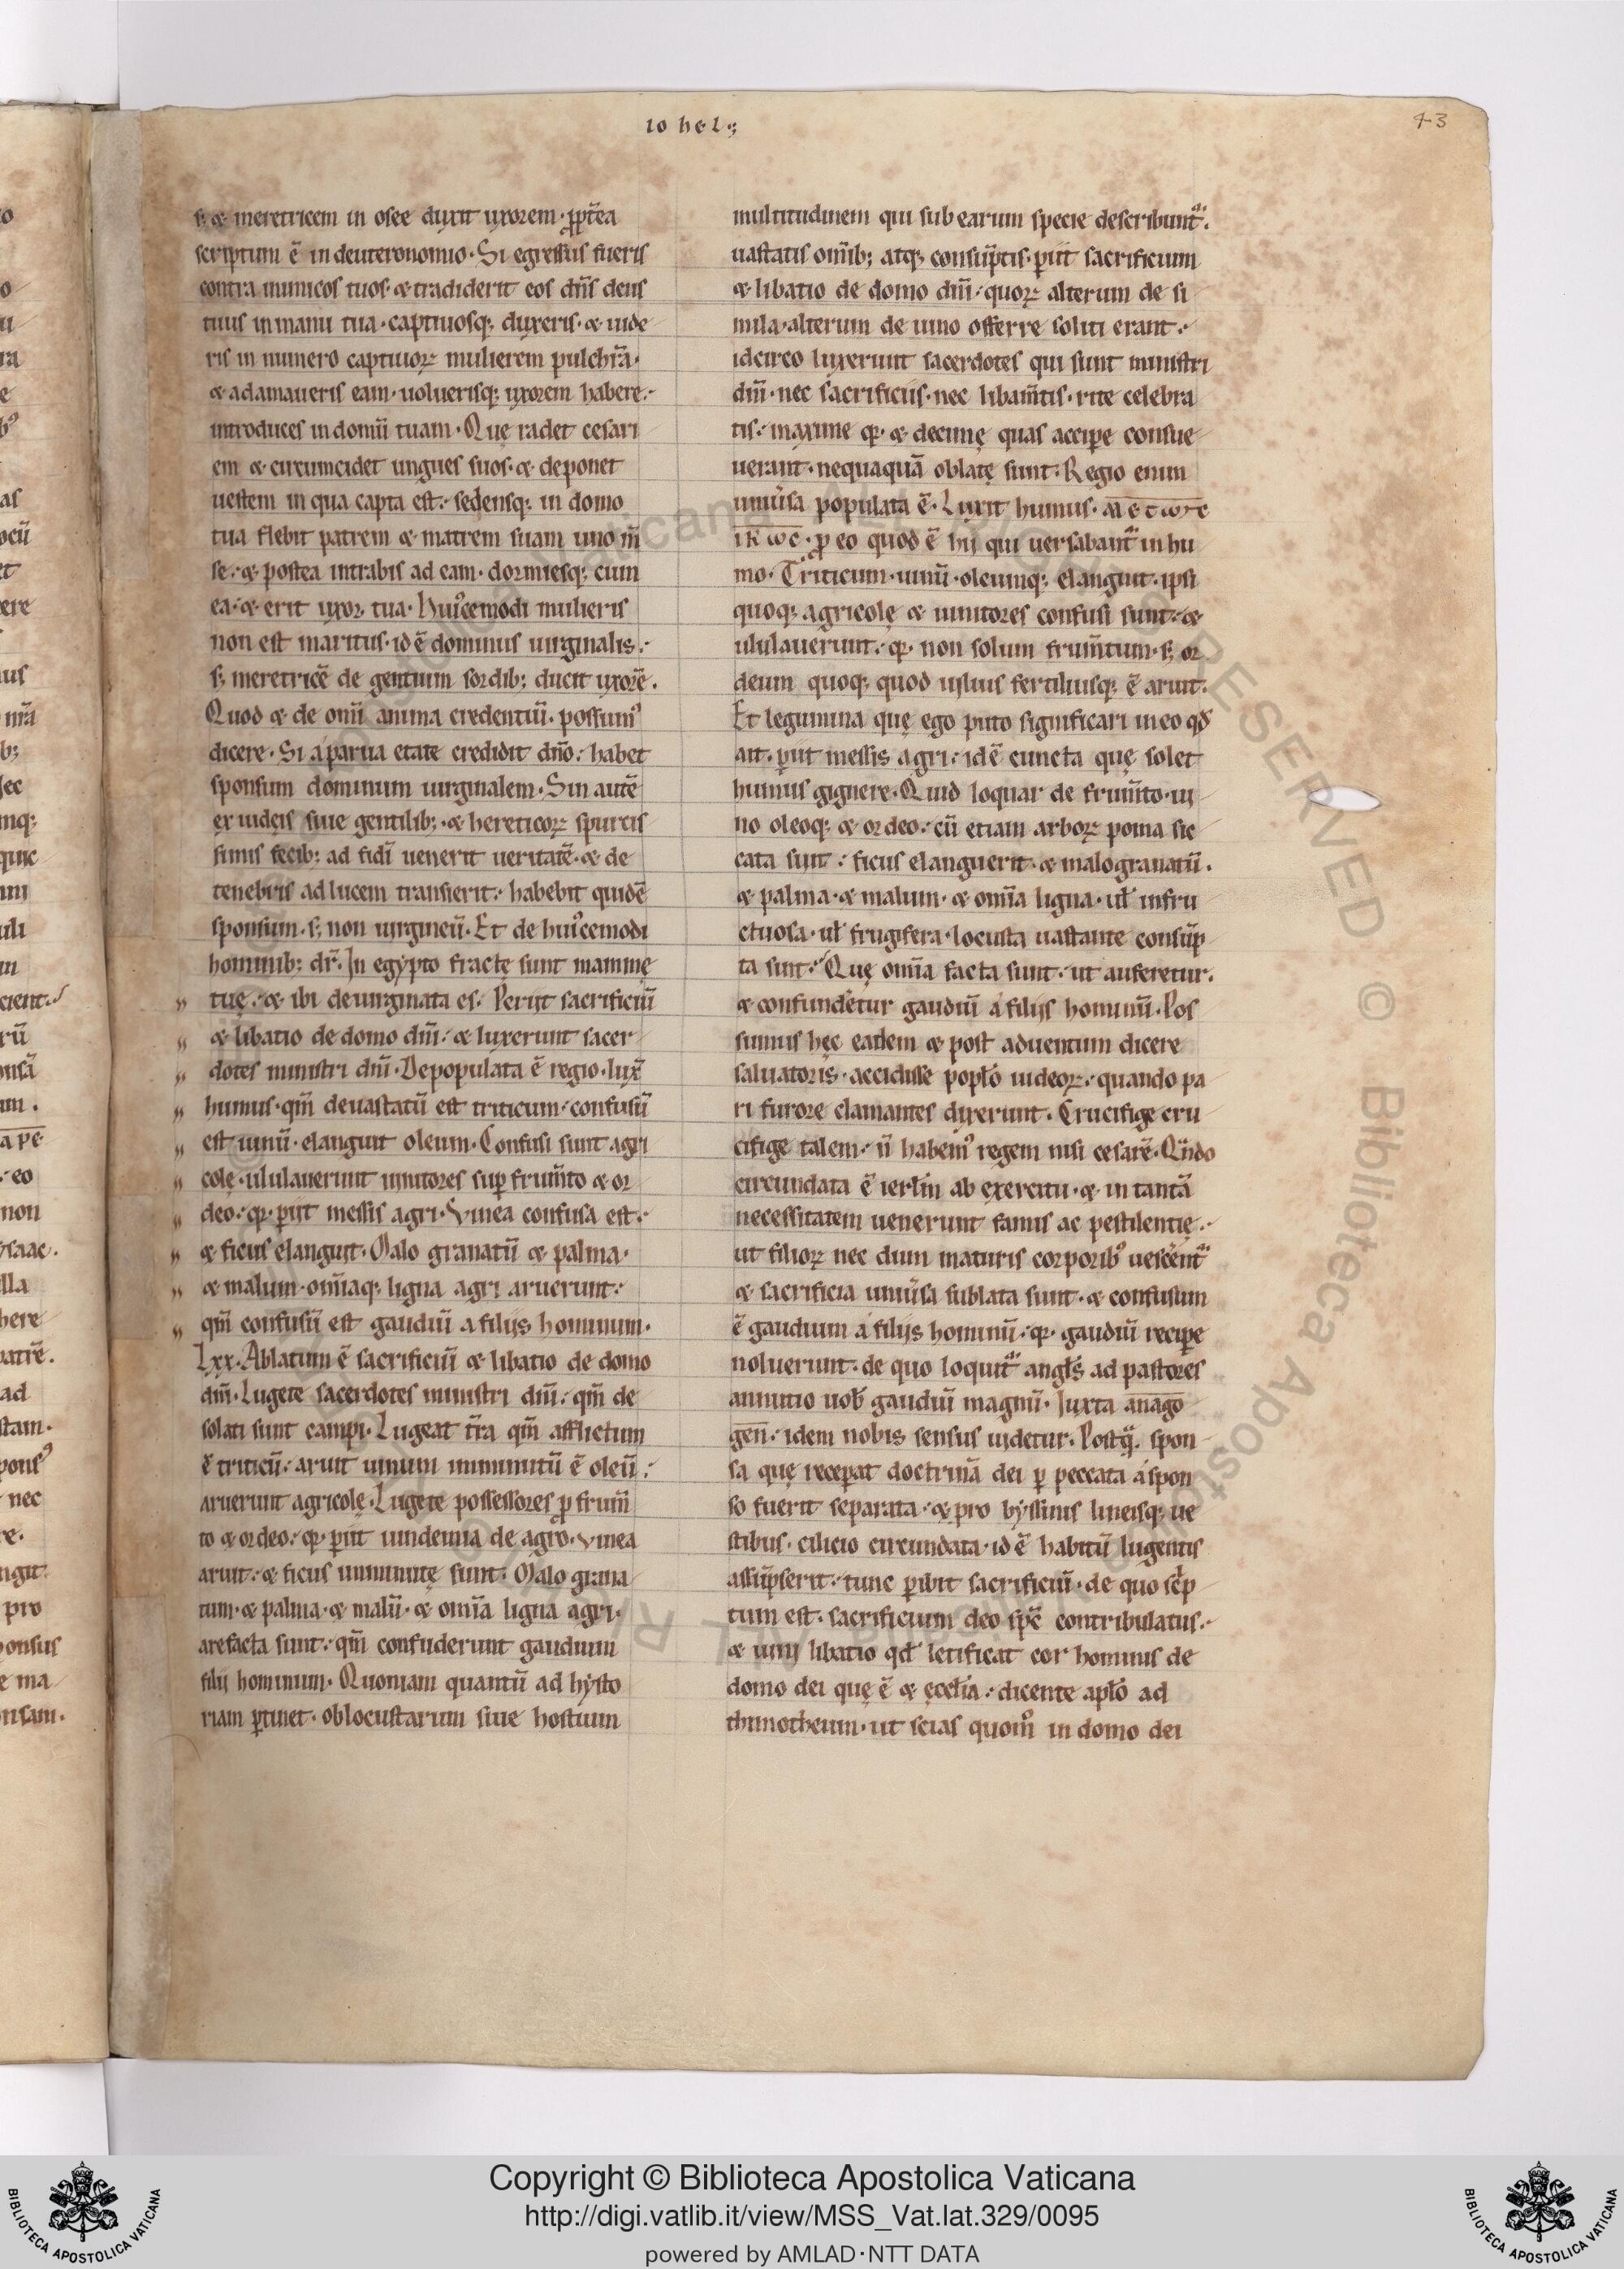 io hel·;
43
s; & meretricem in osee duxit uxorem· ꝓpt̄ea
scriptum ē in deuteronomio· Si egressus fueris
contra inimicos tuos· & tradiderit eos dn̄s deus
tuus in manu tua· captiuosq; duxeris· & uide
ris in numero captiuoꝝ mulierem pulchrā·
& adamaueris eam· uoluerisq; uxorem habere·
introduces in domū tuam· Quę radet cesari
em & circumcidet ungues suos· & deponet
uestem in qua capta est· sedensq; in domo
tua flebit patrem & matrem suam uno m̄
se· & postea intrabis ad eam· dormiesq; cum
ea· & erit uxor tua· Hui᾽cemodi mulieris
non est maritus· id ē dominus uirginalis·
s; meretricē de gentium sordib; ducit uxorē·
Quod & de omī anima credentiū· possum᾽
dicere· Si a parua etate credidit dn̄o· habet
sponsum dominum uirginalem· Sin autē
ex iudeis siue gentilib;· & hereticoꝝ spurcis
simis fecib; ad fidī uenerit ueritatē· & de
tenebris ad lucem transierit· habebit quidē
sponsum· s; non uirgineū· Et de hui᾽cemodi
hominib; dr̄· In egypto fractę sunt mammę
tuę· & ibi deuirginata es· Periit sacrificiū
& libatio de domo dn̄i· & luxerunt sacer
dotes ministri dn̄i· Depopulata ē regio· lux̄
humus· qm̄ deuastatū est triticum· confusū
est uinū· elanguit oleum· Confusi sunt agri
colę· ululauerunt uinitores suꝑ frum̄to & or
deo· qꝛ ꝑiit messis agri· Vinea confusa est·
& ficus elanguit· Malo granatū & palma·
& malum· om̄iaq; ligna agri aruerunt·
qm̄ confusū est gaudiū a filiis hominum·
Lxx· Ablatum ē sacrificiū & libatio de domo
dn̄i· Lugete sacerdotes ministri dn̄i· qm̄ de
solati sunt campi· Lugeat t̄ra qm̄ afflictum
ē triticū· aruit uinum imminutū ē oleū·
aruerunt agricolę· Lugete possessores ꝓ frum̄
to & ordeo· qꝛ ꝑiit uindemia de agro· Vinea
aruit· & ficus imminutę sunt· Malo grana
tum· & palma· & malū· & om̄ia ligna agri·
arefacta sunt· qm̄ confuderunt gaudium
filii hominum· Quoniam quantū ad hysto
riam ꝑtinet· ob locustarum siue hostium
multitudinem qui sub earum specie describunt᷑·
uastatis om̄ib; atq; consūptis· ꝑiit sacrificium
& libatio de domo dn̄i· quoꝝ alterum de si
mila· alterum de uino offerre soliti erant·
idcirco luxerunt sacerdotes qui sunt ministri
dn̄i· nec sacrificiis· nec libam̄tis· rite celebra
tis· maxime qꝛ & decimę quas accipe consue
uerant· nequaquā oblatę sunt· Regio enim
uniu᾽sa populata ē· Luxit humus· ΜΕΤωΝΥ
ΙΚωC· ꝓ eo quod ē hii qui uersabant᷑ in hu
mo· Triticum· uinū· oleumq; elanguit· ipsi
quoq; agricolę & uinitores confusi sunt· &
ululauerunt· qꝛ non solum frum̄tum· s; or
deum quoq; quod uilius fertiliusq; ē aruit·
Et legumina quę ego puto significari in eo qđ
ait· ꝑiit messis agri· id ē cuncta quę solet
humus gignere· Quid loquar de frum̄to· ui
no oleoq; & ordeo· cū etiam arboꝝ poma sic
cata sunt· ficus elanguerit· & malogranatū·
& palma· & malum· & om̄ia ligna· uł infru
ctuosa· uł frugifera· locusta uastante consūp
ta sunt· Quę om̄ia facta sunt· ut auferetur·
& confunderetur gaudiū a filiis hominū· Pos
sumus hęc eadem & post aduentum dicere
saluatoris· accidisse popło iudeoꝝ· quando pa
ri furore clamantes dixerunt· Crucifige cru
cifige talem· n̄ habem᾽ regem nisi cesarē· Qn̄do
circundata ē ierłm ab exercitu· & in tantā
necessitatem uenerunt famis ac pestilentię·
ut filioꝝ nec dum maturis corporib᾽ uescent᷑
& sacrificia uniu᾽sa sublata sunt· & confusum
ē gaudium a filiis hominū· qꝛ gaudiū recipe
noluerunt· de quo loquit᷑ angłs ad pastores
annutio uob᾽ gaudiū magnū· Iuxta anago
gen̄· idem nobis sensus uidetur· Postq̄· spon
sa quę recepat doctrinā dei ꝑ peccata a spon
so fuerit separata· & pro byssinis lineisq; ue
stibus· cilicio circundata· id ē habitū lugentis
assūpserit· tunc ꝑibit sacrificiū· de quo sc̄p
tum est· sacrificium deo sp̄c contribulatus·
& uini libatio qđ letificat cor hominis de
domo dei quę ē & ęccłia· dicente apło ad
thimotheum· ut scias quom᾽ in domo dei
Copyright © Biblioteca Apostolica Vaticana
http://digi.vatlib.it/view/MSS_Vat.lat.329/0095
powered by AMLAD·NTT DATA
BIBLIOTECA APOSTOLICA VATICANA
BIBLIOTECA APOSTOLICA VATICANA